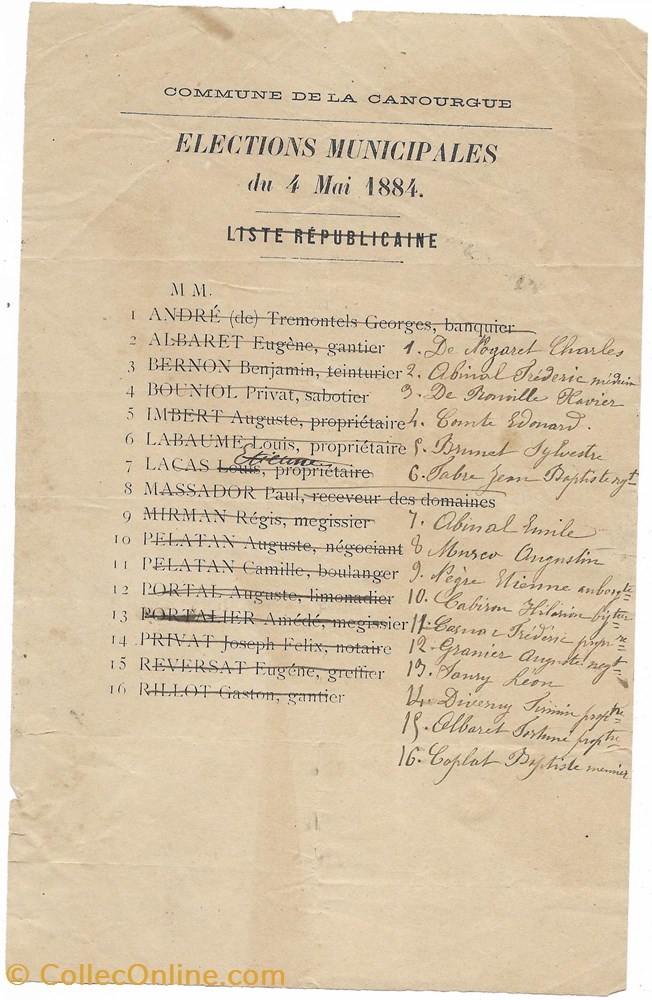 COMMUNE DE LA CANOURGUE
ELECTIONS MUNICIPALES
du 4 Mai 1884.
LISTE RÉPUBLICAINE
MM.
1 ANDRÉ (de) Tremontels Georges, banquier
2 ALBARET Eugène, gantier
3 BERNON Benjamin, teinturier
4 BOUNIOL Privat, sabotier
5 IMBERT Auguste, propriétaire
6 LABAUME Louis, propriétaire
Etienne
7 LACAS Louis, propriétaire
8 MASSADOR Paul, receveur des domaines
9 MIRMAN Régis, megissier
10 PELATAN Auguste, négociant
11 PELATAN Camille, boulanger
12 PORTAL Auguste, limonadier
13 PORTALIER Amédé, megissier
14 PRIVAT Joseph Felix, notaire
15 REVERSAT Eugéne, greffier
16 RILLOT Gaston, gantier
1. De Nogaret Charles
2. Abinal Fréderic médecin
3. De Xavier
4. Comte Edouard.
5. Brunet Sylvestre
6. Fabre Jean Baptiste negt
7. Abinal Emile
8 Augustin
9. Nègre Etienne aubergte
10. Cabiron Hilarion bijtier
11. Frédéric proprre
12. Granier Auguste negt
13. Léon
14. Firmin proptre
15. Albaret Fortuné proptre
16. Coplat Baptiste meunier
© CollecOnline.com